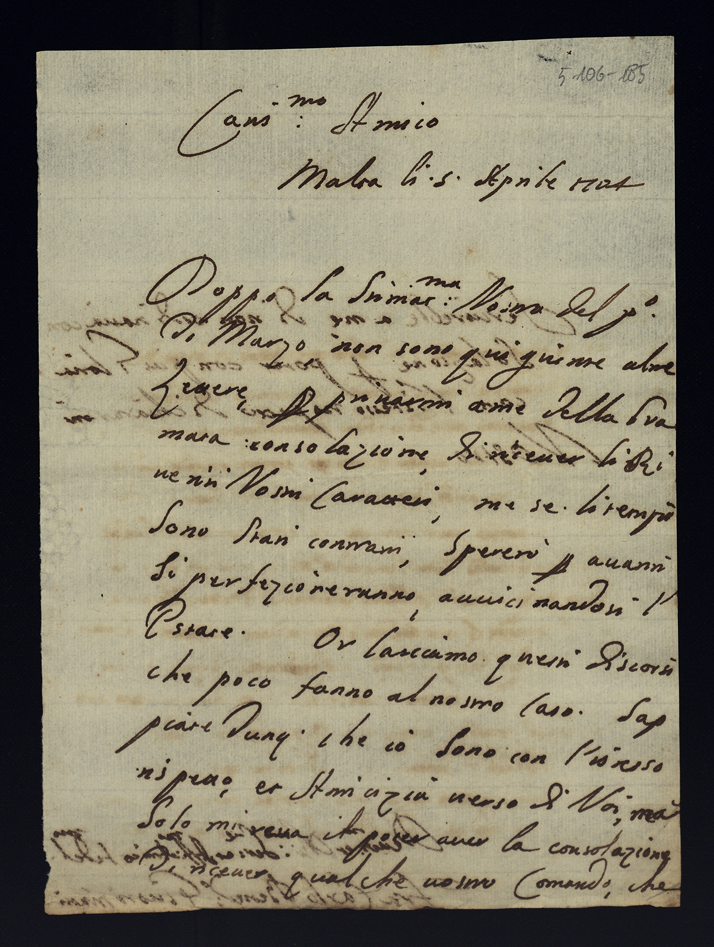 5-106-185
Caris.mo Amico
Malta li 5. Aprile 1724
Doppo la Stimat.ma Vostra del p.o
di Marzo non sono qui giunte altre
lettere, p privarmi a me della bra
mata consolazione, di ricever li Ri
veriti Vostri Caratteri, me se li tempi
sono stati contrari, spererò p avanti
si perfezioneranno, avvicinandosi l'
Estate. Or lasciamo questi discorsi
che poco fanno al nostro Caso. Sap
piate Dunq. che io sono con l'istesso
rispetto, et Amicizia verso di Voi, mà
solo mi resta poter aver la consolazione
di ricever qualche vostro Comando, che